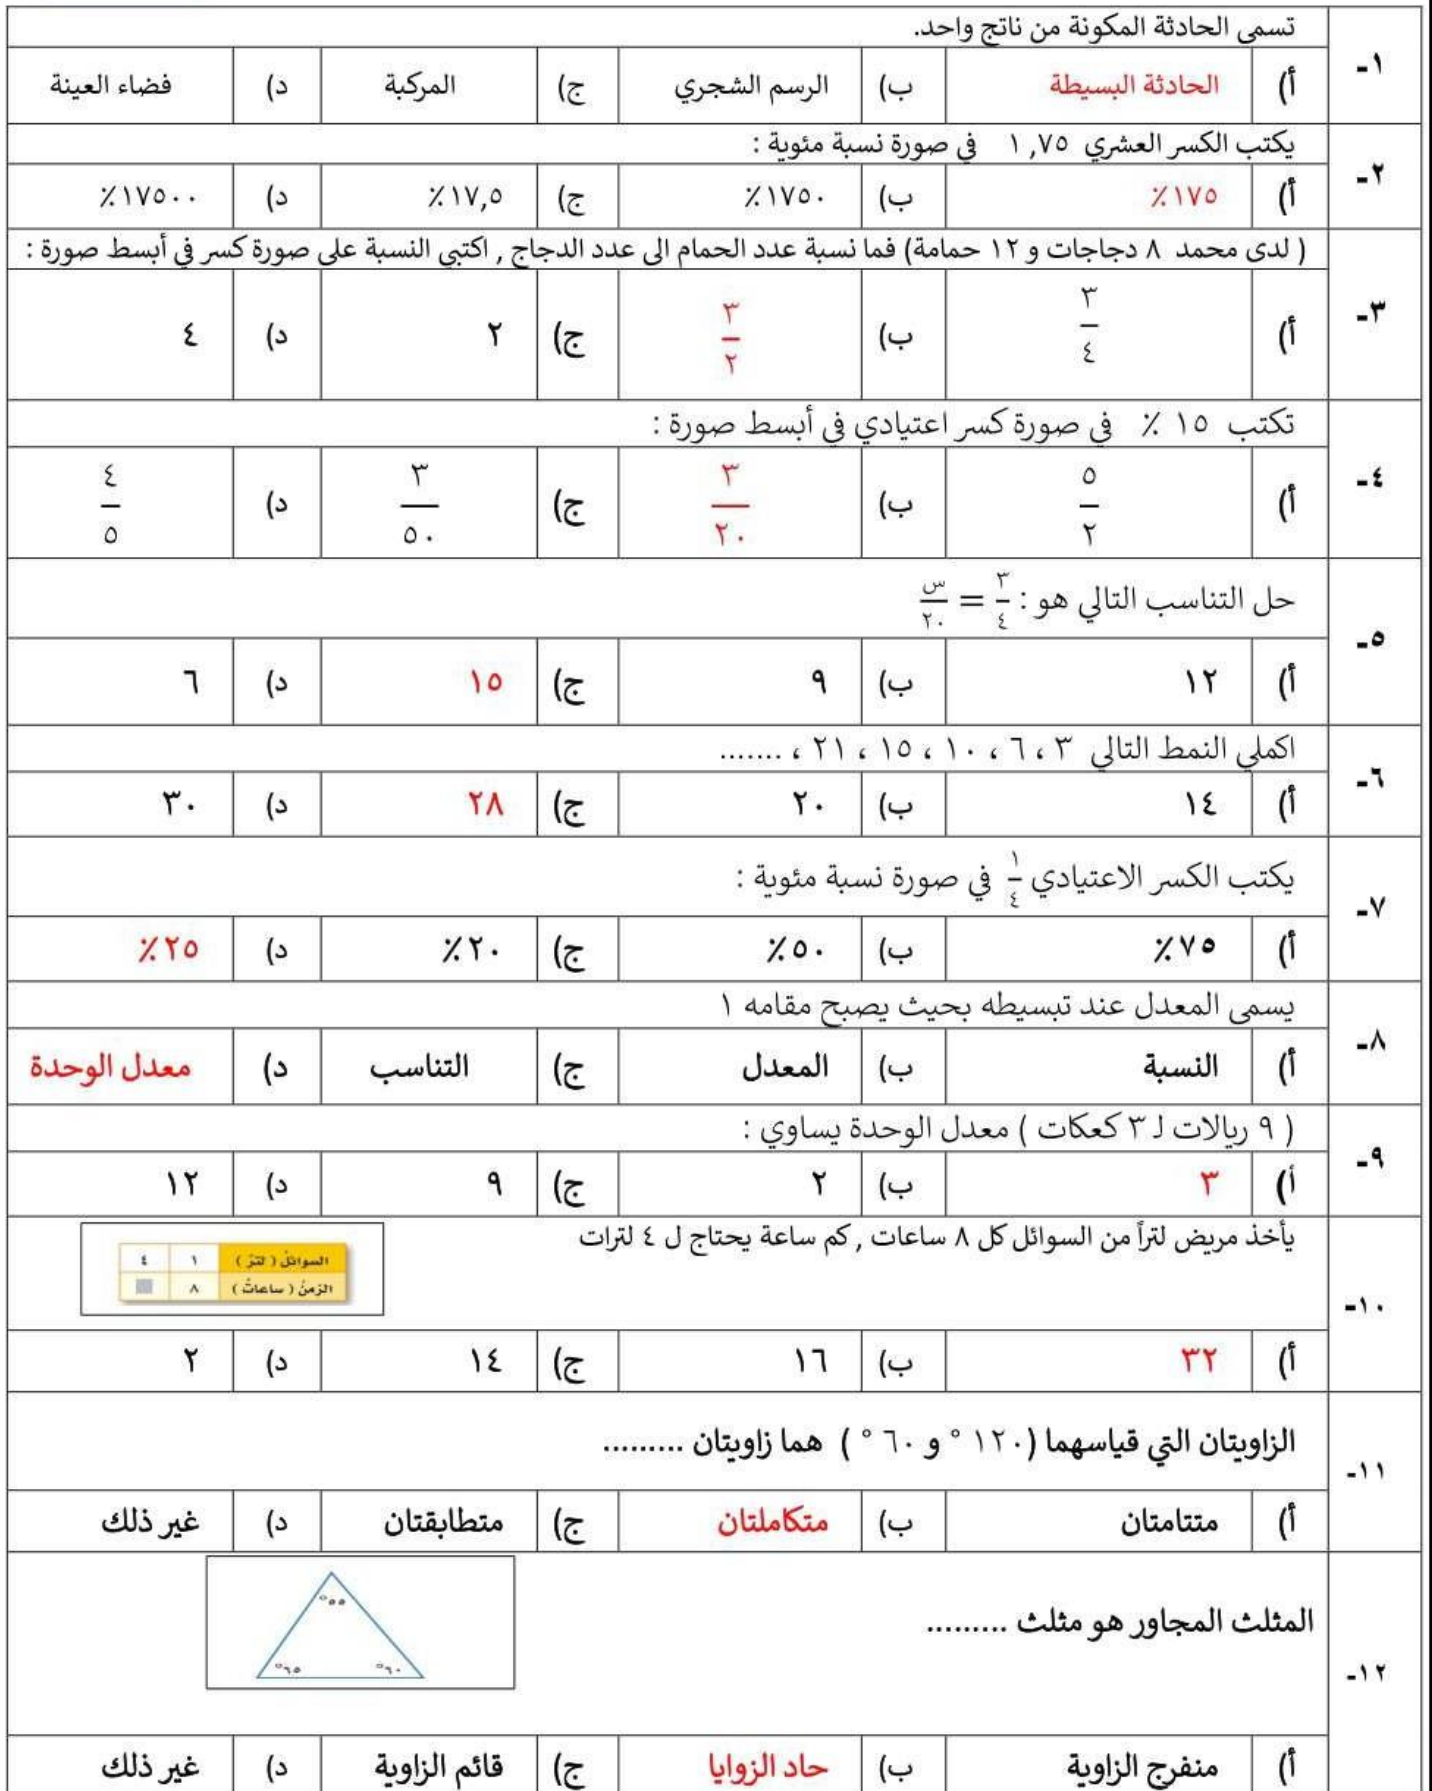 تسمى الحادثة المكونة من ناتج واحد.
١-
أ) الحادثة البسيطة ب) الرسم الشجري ج) المركبة د) فضاء العينة
يكتب الكسر العشري ١,٧٥ في صورة نسبة مئوية :
٢-
أ) ١٧٥٪ ب) ١٧٥٠٪ ج) ١٧,٥٪ د) ١٧٥٠٠٪
( لدى محمد ٨ دجاجات و ١٢ حمامة) فما نسبة عدد الحمام الى عدد الدجاج , اكتبي النسبة على صورة كسر في أبسط صورة :
٣-
أ) ٣/٤ ب) ٣/٢ ج) ٢ د) ٤
تكتب ١٥ ٪ في صورة كسر اعتيادي في أبسط صورة :
٤-
أ) ٥/٢ ب) ٣/٢٠ ج) ٣/٥٠ د) ٤/٥
حل التناسب التالي هو : ٣/٤ = س/٢٠
٥-
أ) ١٢ ب) ٩ ج) ١٥ د) ٦
اكملي النمط التالي ٣ ، ٦ ، ١٠ ، ١٥ ، ٢١ ، .......
٦-
أ) ١٤ ب) ٢٠ ج) ٢٨ د) ٣٠
يكتب الكسر الاعتيادي ١/٤ في صورة نسبة مئوية :
٧-
أ) ٧٥٪ ب) ٥٠٪ ج) ٢٠٪ د) ٢٥٪
يسمى المعدل عند تبسيطه بحيث يصبح مقامه ١
٨-
أ) النسبة ب) المعدل ج) التناسب د) معدل الوحدة
( ٩ ريالات لـ ٣ كعكات ) معدل الوحدة يساوي :
٩-
أ) ٣ ب) ٢ ج) ٩ د) ١٢
يأخذ مريض لتراً من السوائل كل ٨ ساعات , كم ساعة يحتاج ل ٤ لترات
السوائل ( لتر ) ١ ٤
الزمن ( ساعات ) ٨
١٠-
أ) ٣٢ ب) ١٦ ج) ١٤ د) ٢
الزاويتان التي قياسهما (١٢٠ ° و ٦٠ ° ) هما زاويتان .........
١١-
أ) متتامتان ب) متكاملتان ج) متطابقتان د) غير ذلك
°٥٥
المثلث المجاور هو مثلث .........
°٦٠ °٦٥
١٢-
أ) منفرج الزاوية ب) حاد الزوايا ج) قائم الزاوية د) غير ذلك